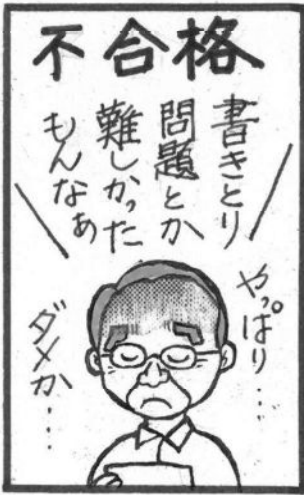 不合格
書きとり
問題とか
難しかった
もんなぁ
やっぱり…
ダメか…